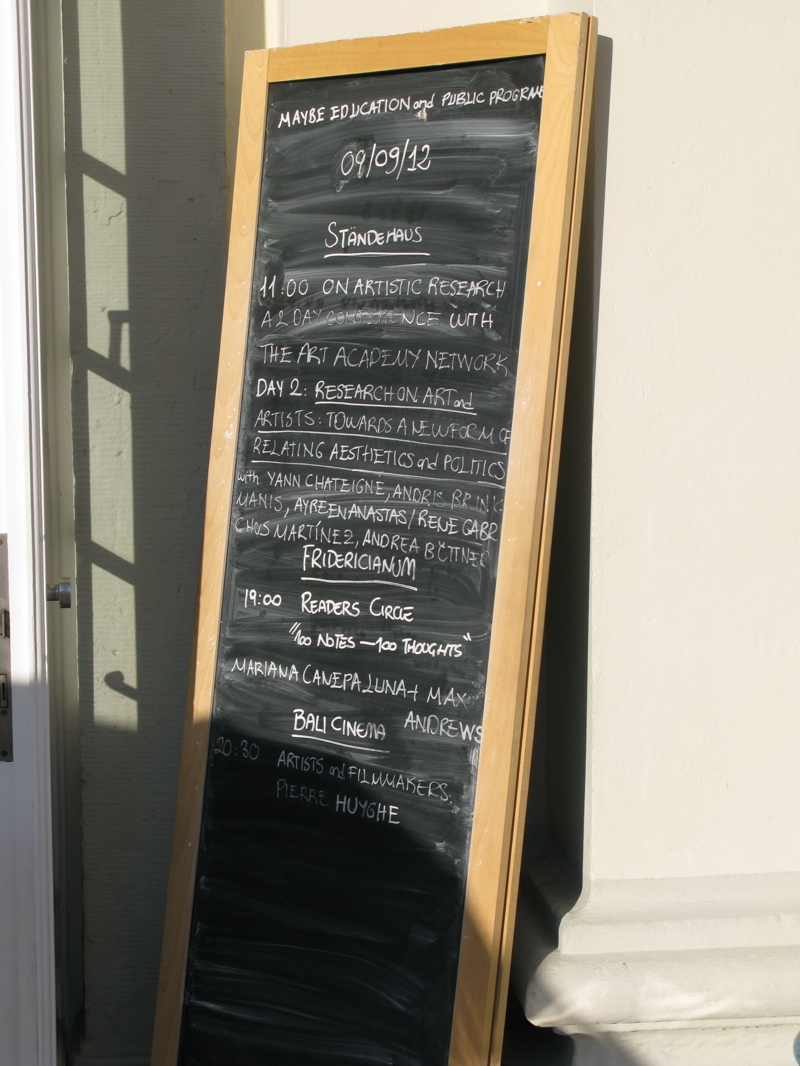 MAYBE EDUCATION and PUBLIC PROGRAMS
09/09/12
STÄNDEHAUS
11:00 ON ARTISTIC RESEARCH
A 2 DAY CONFERENCE WITH
THE ART ACADEMY NETWORK
DAY 2: RESEARCH ON ART and
ARTISTS: TOWARDS A NEW FORM OF
RELATING AESTHETICS and POLITICS
with YANN CHATEIGNÉ, ANDRIS BRINK-
MANIS, AYREEN ANASTAS / RENE GABRI
CHUS MARTÍNEZ, ANDREA BÜTTNER
FRIDERICIANUM
19:00 READERS CIRCLE
"100 NOTES — 100 THOUGHTS"
MARIANA CANEPA LUNA + MAX
ANDREWS
BALI CINEMA
20:30 ARTISTS and FILMMAKERS:
PIERRE HUYGHE